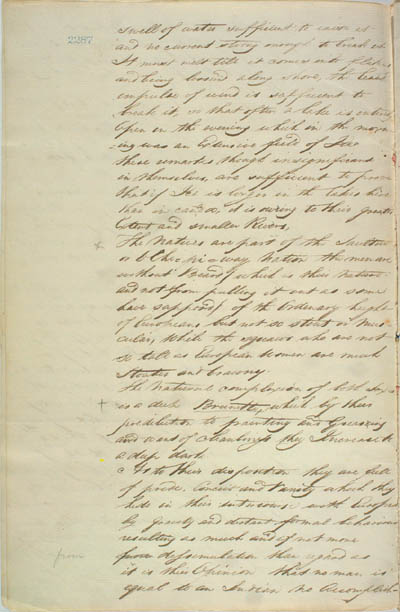 2287
swell of water sufficient to raise it
and no current strong enough to break it
It must melt till it comes
and being loosed along shore, the least
impulse of wind is sufficient to
break it, so that often a lake is entirely
open in the evening which in the morn
-ing was an Extensive field of Ice
these remarks though insignificant
in themselves, are sufficient to prove
that if Ice is longer in the lakes here
than in it is owing to their greater
Extent and smaller Rivers,
× The Natives are part of the
or Nation the men are
without Beard (which is their Nature
and not from pulling it out as some
have supposed) of the Ordinary height
of Europeans but not so stout or Mus
cular, While the who are not
so tall as European Women are much
Stouter and brawny.
The Natural complexion of both
+ is a dark Brunette, which by their
predilection to painting and Greasing
and want of cleanliness they Increase to
a deep dark
As to their disposition they are full
of pride, Conceit and Vanity which they
hide in their intercourse with Europeans
by gravity and distant formal behaviour
resulting as much and if not more
from from dissimulation than regard as
it is their Opinion that no man is
equal to an Indian no Accomplish-